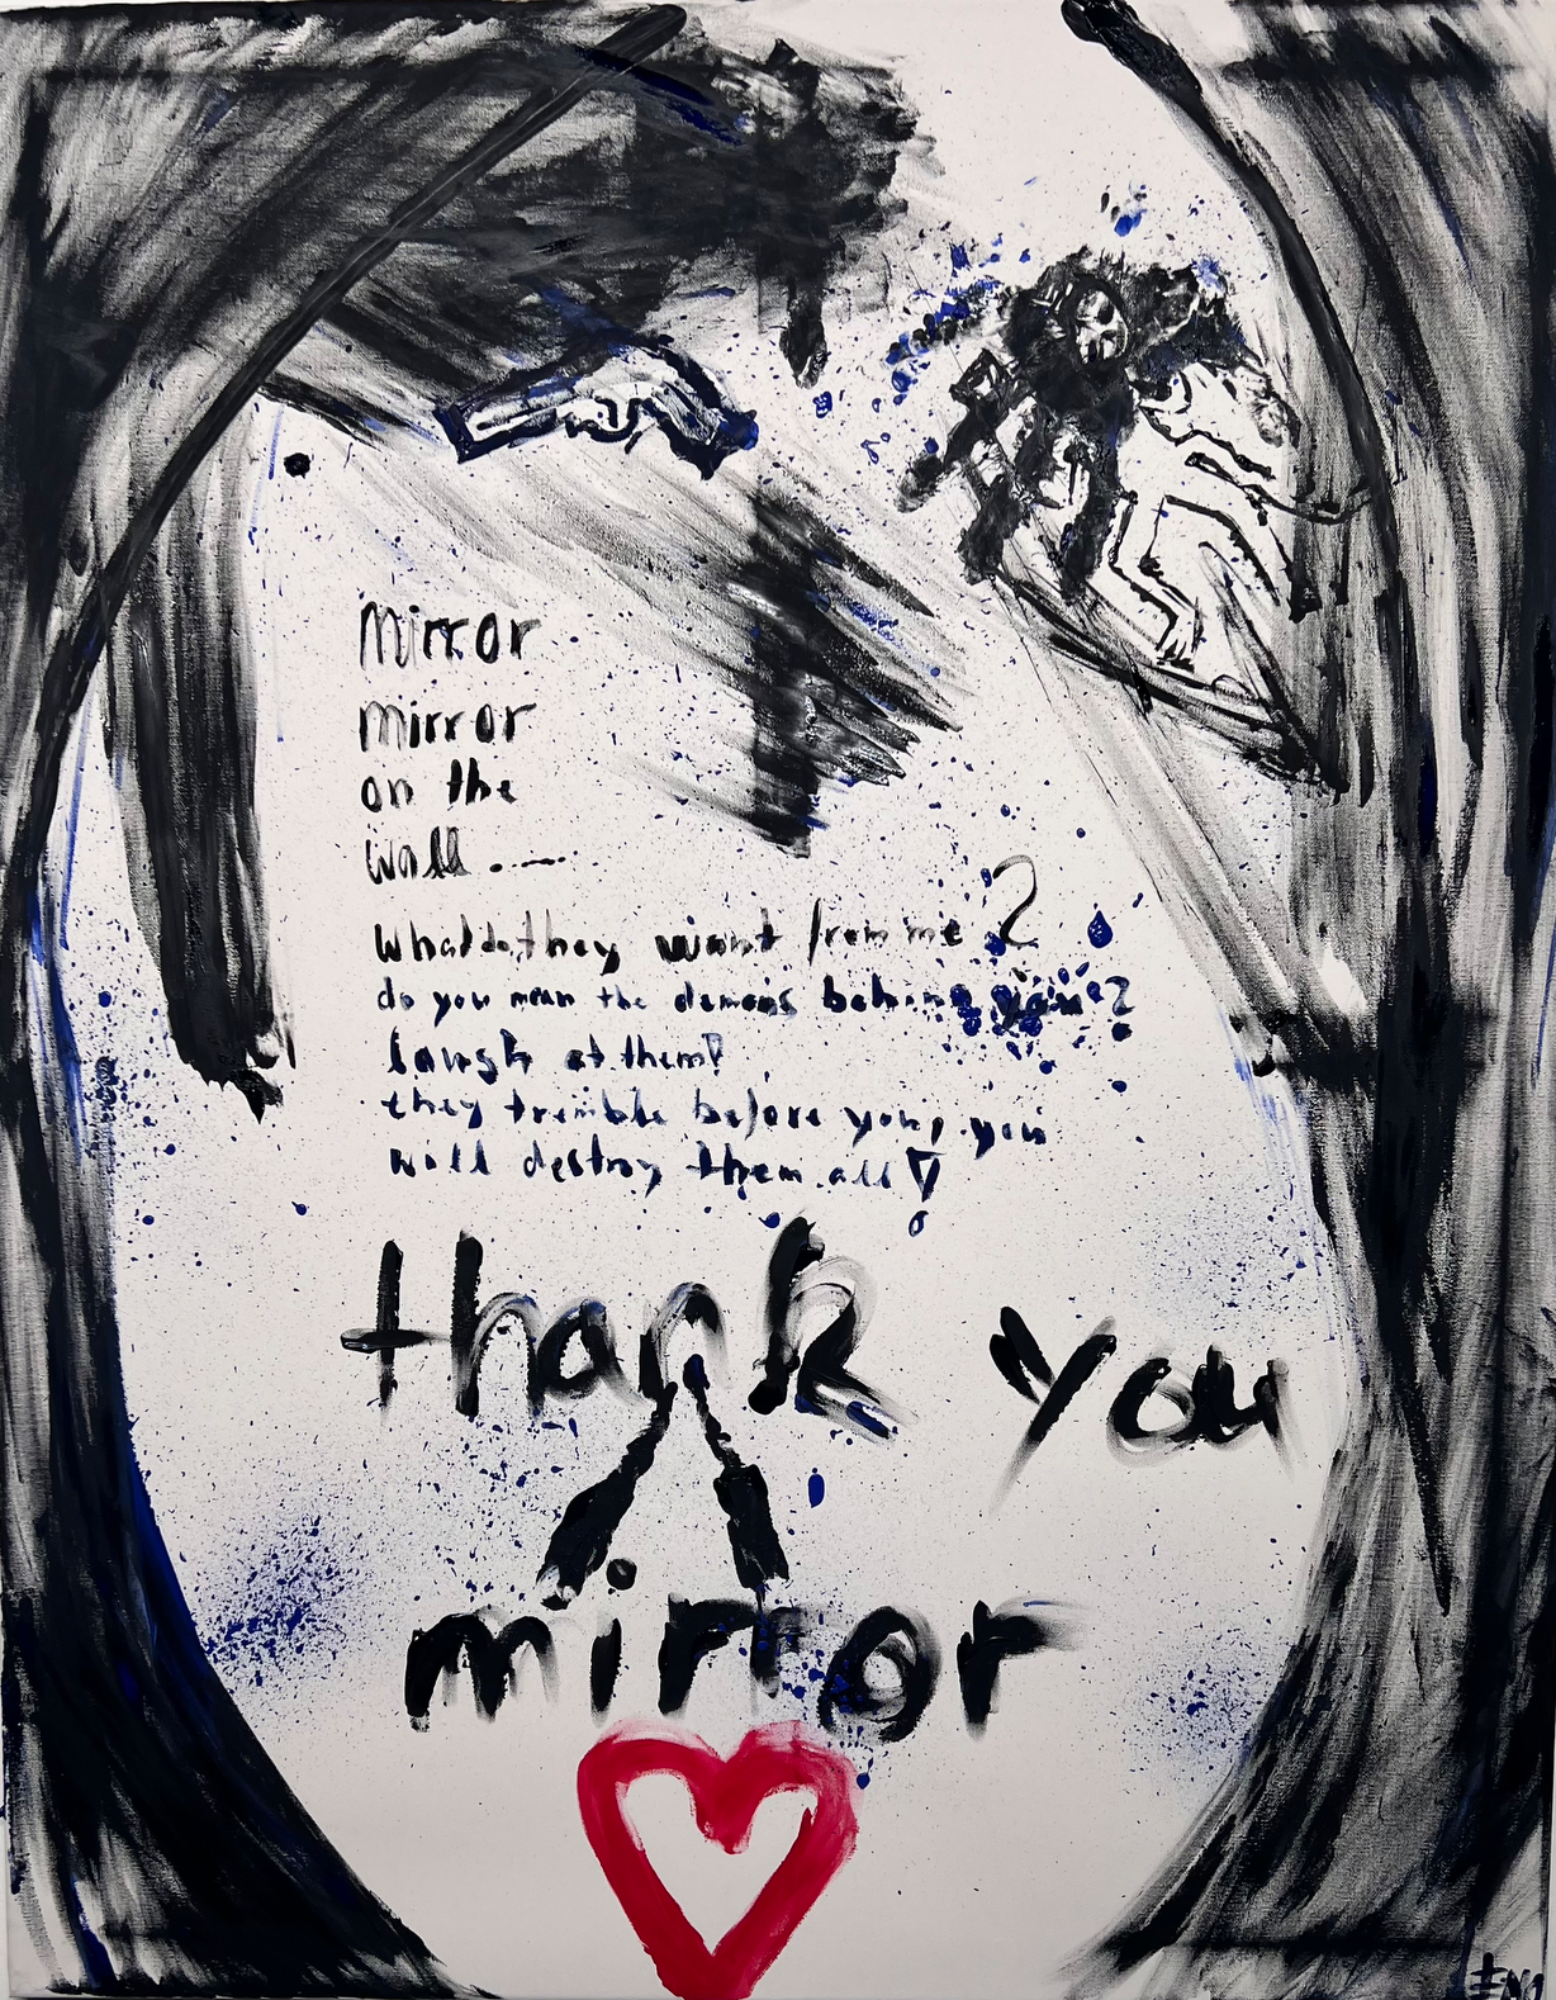 mirror
mirror
on the
wall .----
what do they want from me ?
do you mean the demons behind you ?
laugh at them!
they tremble before you, you
will destroy them all !
thank you
mirror